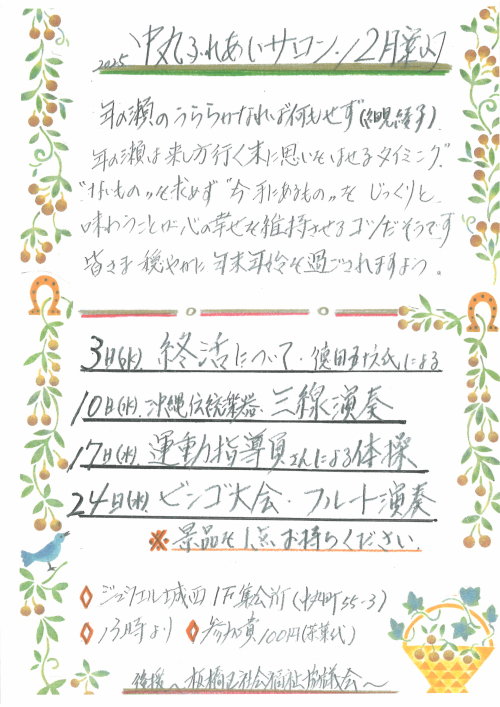 2025 中丸ふれあいサロン 12月案内
年の瀬のうららかなれば何もせず(細見綾子)
年の瀬は来し方行く末に思いをはせるタイミング。
"ないもの"を求めず"今手にあるもの"を じっくりと
味わうことが心の幸せを維持させるコツだそうです
皆さま 穏やかに年末年始を過ごされますよう。
3日(水). 終活について・徳田五六氏による
10日(水). 沖縄伝統楽器・三線演奏
17日(水). 運動指導員さんによる体操
24日(水). ビンゴ大会・フルート演奏
※景品を1点お持ちください.
ジェシェル城西 1F集会所(中丸町55-3)
13時より 参加費100円(茶菓代)
後援〜板橋区社会福祉協議会〜